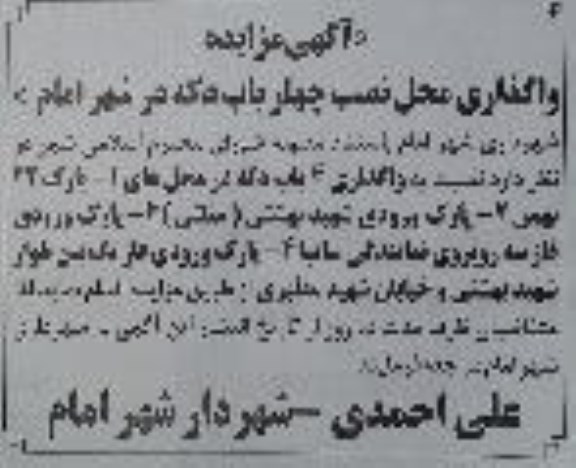 «آگهی مزایده
واگذاری محل نصب چهار باب دکه در شهر امام»
شهرداری شهر امام باستناد مصوبه شورای محترم اسلامی شهر در
نظر دارد نسبت به واگذاری ۴ باب دکه در محل های ۱- پارک ۲۲
بهمن ۲- پارک ورودی شهید بهشتی ( ) ۳- پارک ورودی
فاز سه روبروی نمایندگی سایپا ۴- پارک ورودی فاز یک بین بلوار
شهید بهشتی و خیابان شهید مطهری از طریق مزایده اقدام نماید لذا
متقاضیان ظرف مدت ده روز از تاریخ انتشار این آگهی به شهرداری
شهر امام مراجعه فرمایند
علی احمدی - شهردار شهر امام